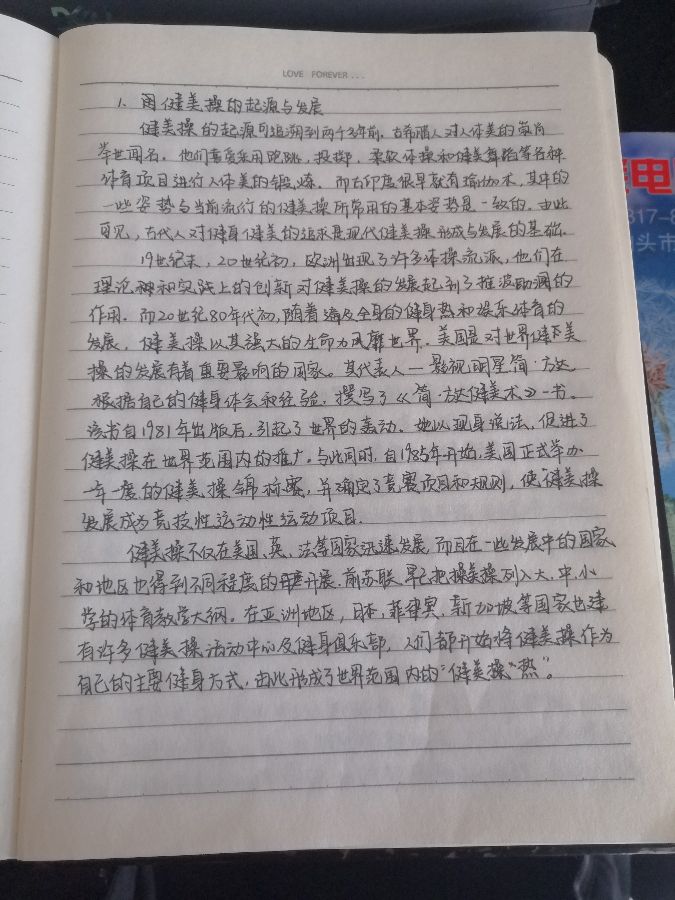 LOVE FOREVER...
1. 国健美操的起源与发展
健美操的起源可追溯到两千多年前，古希腊人对人体美的崇尚
举世闻名。他们喜爱采用跑跳，投掷，柔软体操和健美舞蹈等各种
体育项目进行人体美的锻炼。而古印度很早就有瑜伽术，其中的
一些姿势与当前流行的健美操所常用的基本姿势是一致的。由此
可见，古代人对健身健美的追求是现代健美操形成与发展的基础。
19世纪末，20世纪初，欧洲出现了许多体操流派，他们在
理论和实践上的创新对健美操的发展起到了推波助澜的
作用。而20世纪80年代初，随着遍及全身的健身热和娱乐体育的
发展，健美操以其强大的生命力风靡世界。美国是对世界健美
操的发展有着重要影响的国家。其代表人一影视明星简·方达，
根据自己的健身体会和经验，撰写了《简·方达健美术》一书。
该书自1981年出版后，引起了世界的轰动。她以现身说法，促进了
健美操在世界范围内的推广。与此同时，自1985年开始，美国正式举办
一年一度的健美操锦标赛，并确定了竞赛项目和规则，使健美操
发展成为竞技性运动性运动项目。
健美操不仅在美国、英、法等国家迅速发展，而且在一些发展中的国家
和地区也得到不同程度的开展。前苏联早已把操美操列入大、中、小
学的体育教学大纲。在亚洲地区，日本，菲律宾，新加坡等国家也建
有许多健美操活动中心及健身俱乐部，人们都开始将健美操作为
自己的主要健身方式，由此形成了世界范围内的“健美操”热”。
电
817-8
头市